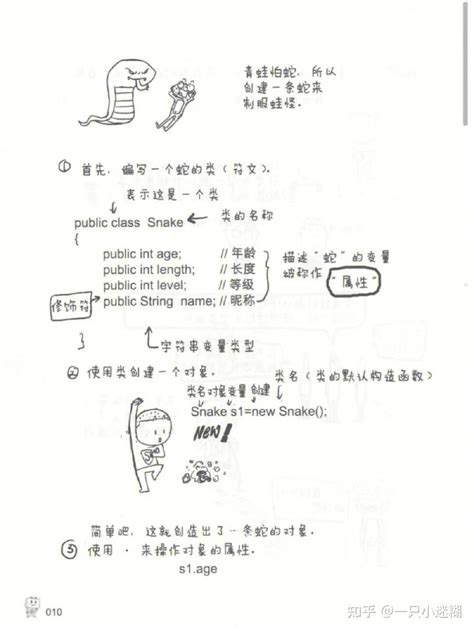 青蛙怕蛇，所以
创建一条蛇来
制服蛙怪。
① 首先，编写一个蛇的类（符文）。
表示这是一个类
public class Snake 类的名称
{
public int age; // 年龄
public int length; // 长度
public int level; // 等级
public String name; // 昵称
描述“蛇”的变量
被称作
“属性”
修饰符
}
字符串变量类型
② 使用类创建一个对象。
类名（类的默认构造函数）
类名对象变量创建
Snake s1=new Snake();
NEW!
简单吧，这就创造出了一条蛇的对象。
③ 使用 · 来操作对象的属性。
s1.age
010
知乎 @一只小迷糊